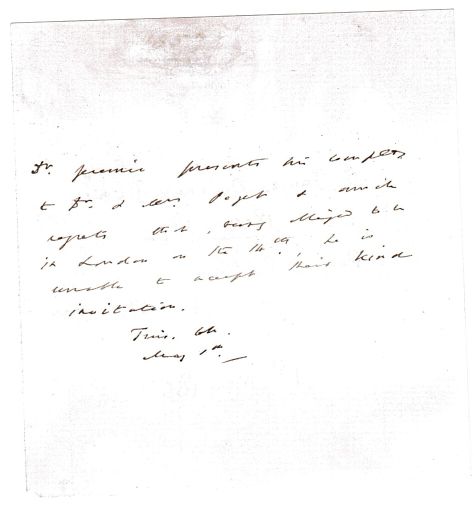 Dr. presents his complts
to Dr. & Mrs. Paget & much
regrets that, being obliged to be
in London on the 14th, he is
unable to accept their kind
invitation.
Trin. Ch.
May 1st.